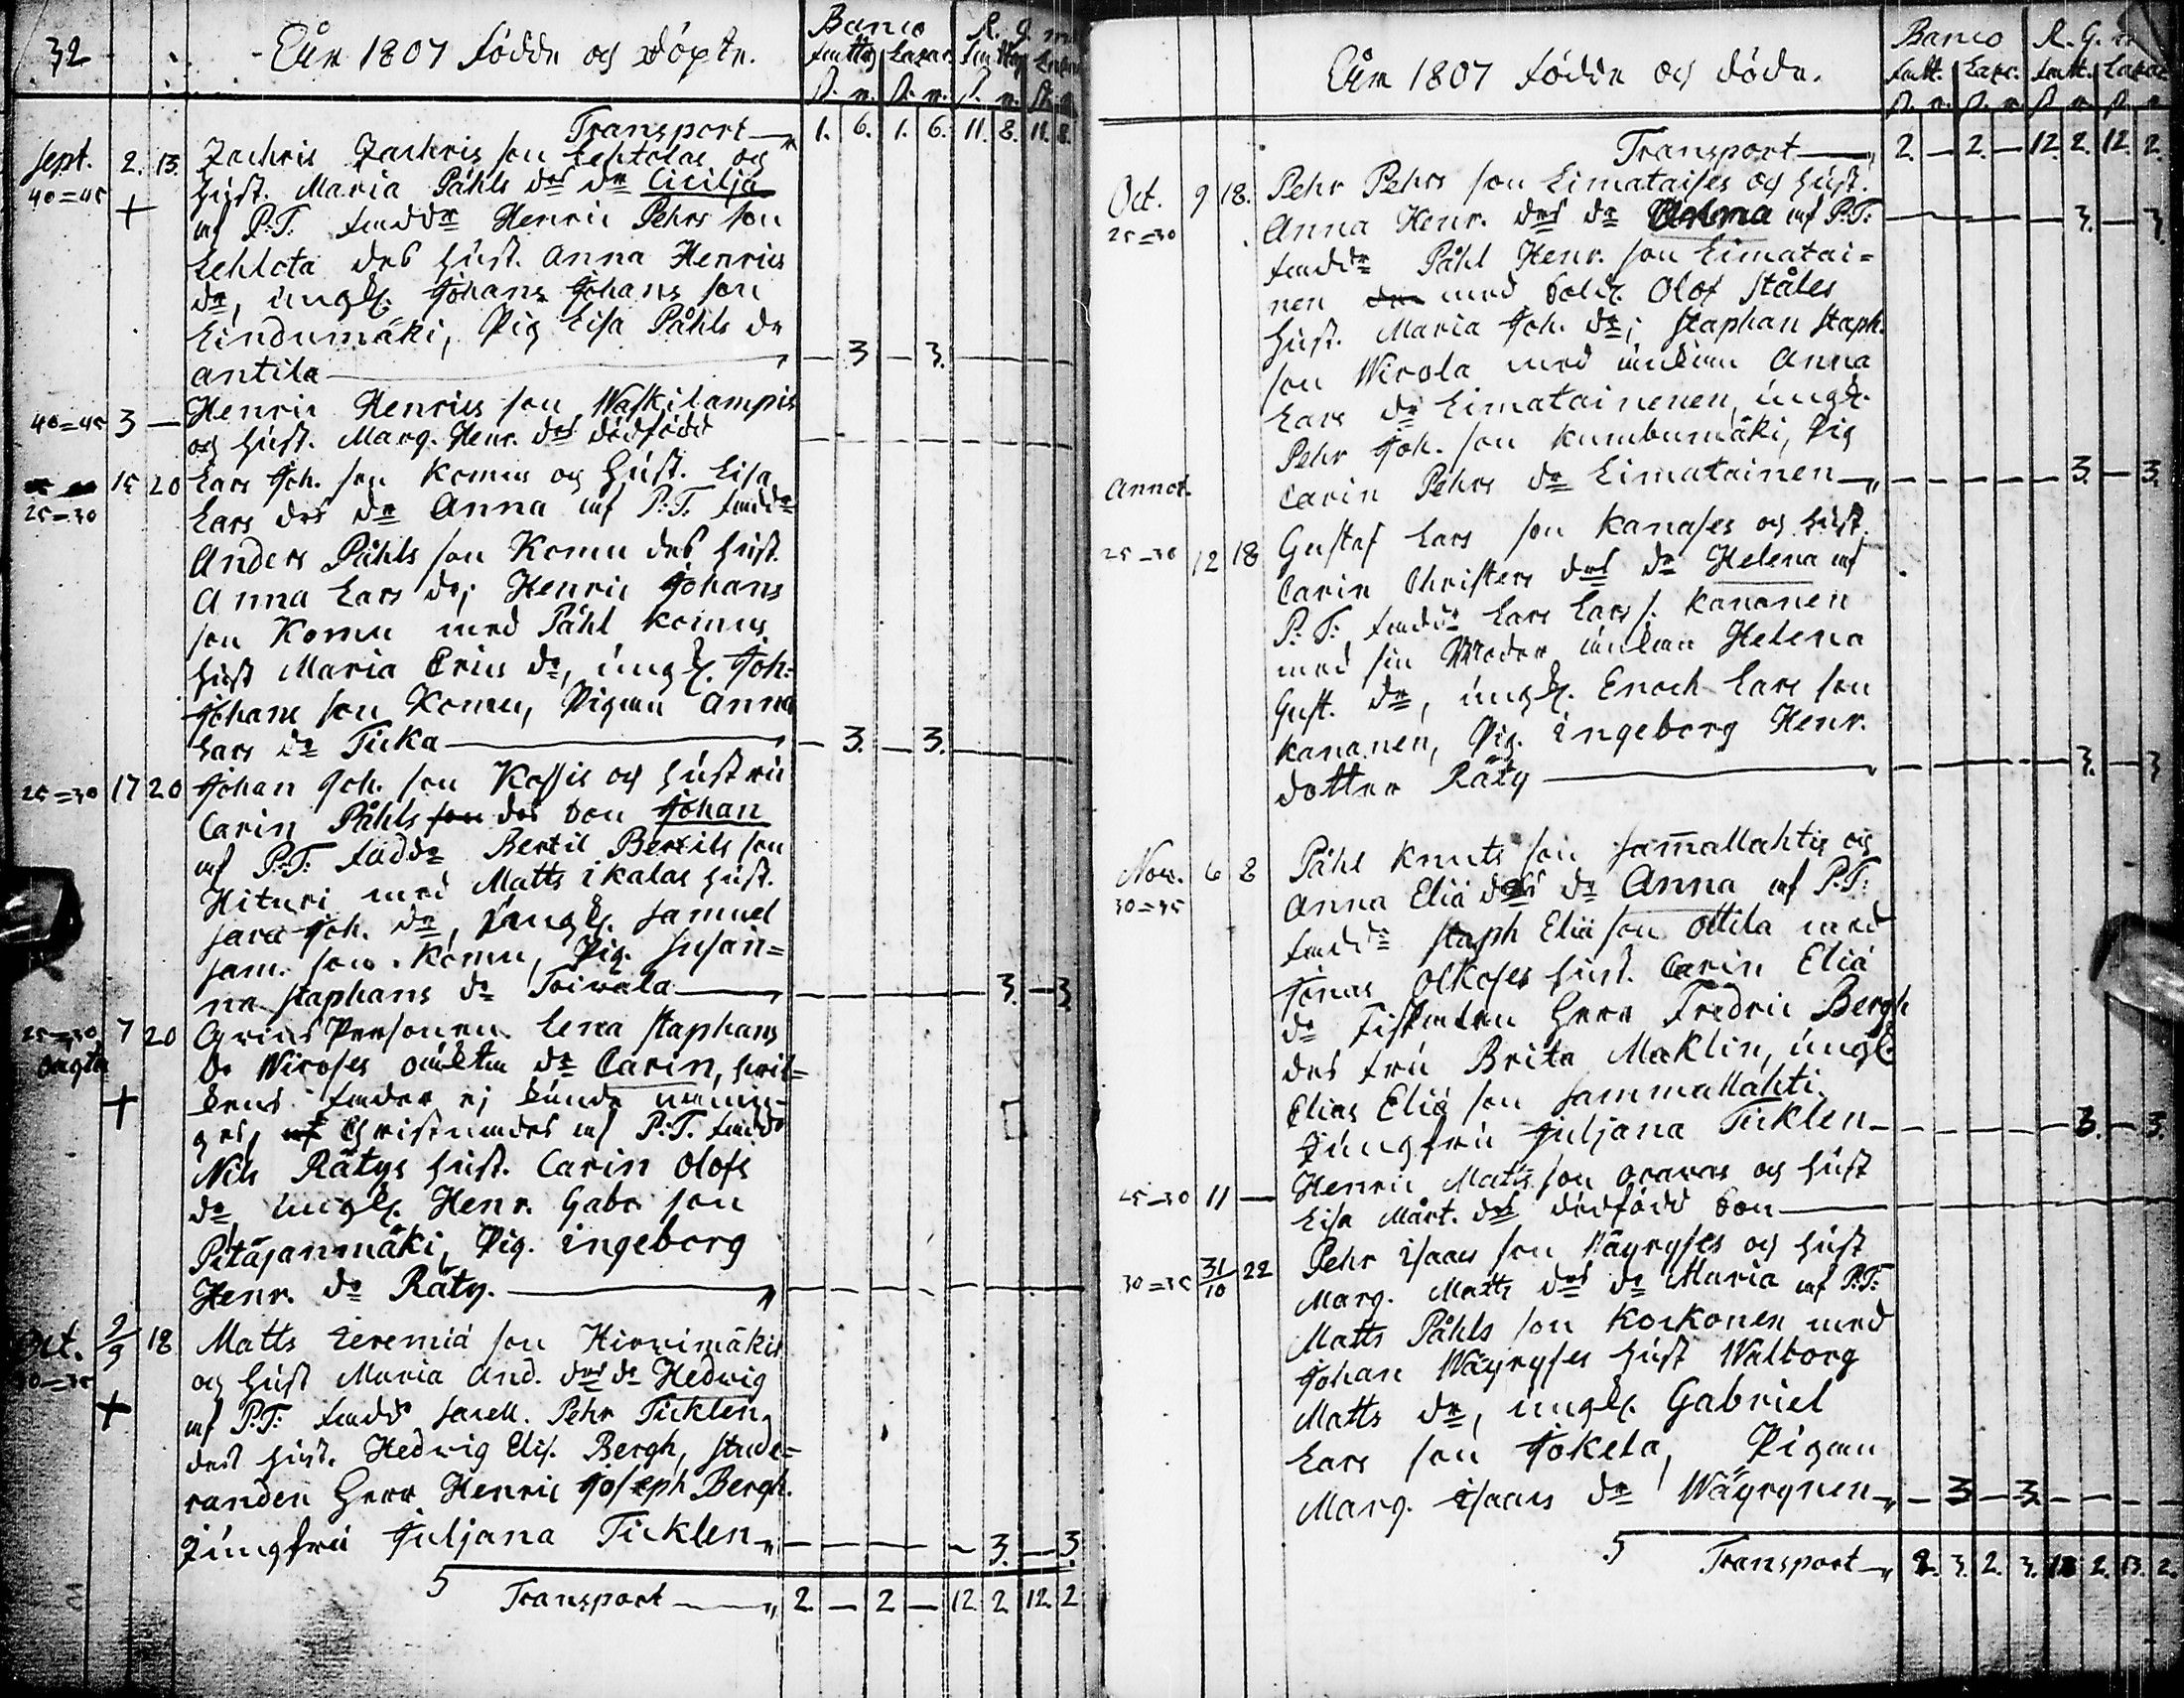 32
Åhr 1807 födde og döpte.
Banco R. G.
Transport 1. 6. 1. 6. 11. 8. 11. 8.
Sept. 2. 13. Zachris Zachris son Lehtolas og
40=45 Hust. Maria Påhls des dr Cicilja
+ af P.T. Fadd. Henric Pehrs son
Lehtota des hust. Anna Henrics
dr, ungk. Johans Johans son
Lindumäki, Pig Lisa Påhls dr
Antila — 3 — 3.
40=45 3 — Henric Henrics son Waskilampis
og hust. Marg. Henr. des dödfödd
15 20 Lars Joh. son Komus og Hust. Lisa
25=30 Lars des dr Anna af P.T. Fadd.
Anders Påhls son Komu des hust.
Anna Lars dr; Henric Johans
son Komu med Påhl Komus
hust Maria Erics dr, ungk. Joh.
Johans son Komu, Pigan Anna
Lars dr Ticka — 3. — 3.
25=30 17 20 Johan Joh. son Kossis og Hustru
Carin Påhls son des son Johan
af P.T. Fadd. Bertil Bertils son
Hituri med Matts ikalas hust.
Sara Joh. dr, ungk. Samuel
Sam. son Komu, Pig. Susan=
na Staphans dr Toiwala — 3. — 3.
25=30 7 20 Qvins Personen Lena Staphans
oägta dr Wiroses oäkta dr Carin, hvil=
+ kens fader ej kunde
Christnades af P.T. Fadd.
Nils Rätys hust. Carin Olofs
dr ungk. Henr. Gabr. son
Pitäjanmäki, Pig. ingeborg
Henr. dr Räty.
Oct. 2/9 18 Matts Jeremiä son Hirvimäkis
30=35 og Hust Maria And. des dr Hedvig
+ af P.T. Fadd Pehr Ticklen
des hust. Hedvig Elis. Bergh, Stude=
randen Herr Henric Joseph Bergh.
Jungfru Juljana Ticklen — 3. — 3.
5 Transport 2 — 2 — 12. 2 12. 2
Åhr 1807 födde og döde.
Banco R. G.
Transport 2. — 2. — 12. 2. 12. 2.
Oct. 9 18. Pehr Pehrs son Limataises og hust.
25=30 Anna Henr. des dr af P.T. 3. — 3.
Fadd. Påhl Henr. son Limatai=
nen med Sold. Olof Ståles
Hust. Maria Joh. dr; Staphan Staph.
son Wirola med änkian Anna
Lars dr Limatainenen, ungk.
Pehr Joh. son Kumbumäki, Pig
Annot. Carin Pehrs dr Limatainen 3. — 3.
25=30 12 18 Gustaf Lars son Kanases og hust.
Carin Christers des dr Helena af
P.T. Fadd. Lars Lars s. Kananen
med sin Moder änkan Helena
Gust. dr, ungk. Enoch Lars son
Kananen, Pig. ingeborg Henr.
dotter Räty 3. — 3
Nov. 6 8 Påhl Knuts son Sam̅allahtis og
30=35 Anna Eliä des dr Anna af P.T.
Fadd. Staph Eliä son Ottila med
Jonas Olkoses hust. Carin Eliä
dr Herr Fredric Bergh
des fru Brita Maklin, ungk.
Elias Eliä son Sammallahti
Jungfru Juljana Ticklen 3. — 3.
25=30 11 — Henric Matts son Oravas og hust
Lisa Mårt. des dödfödd son
30=35 31/10 22 Pehr isaacs son Wäyryses og hust
Marg. Matts des dr Maria af P.T.
Matts Påhls son Korkonen med
Johan Wäyryses hust Walborg
Matts dr, ungk. Gabriel
Lars son Jokela, Pigan
Marg. isaacs dr Wäyrynen — 3 — 3.
5 Transport 2. 3. 2. 3. 2. 13. 2.